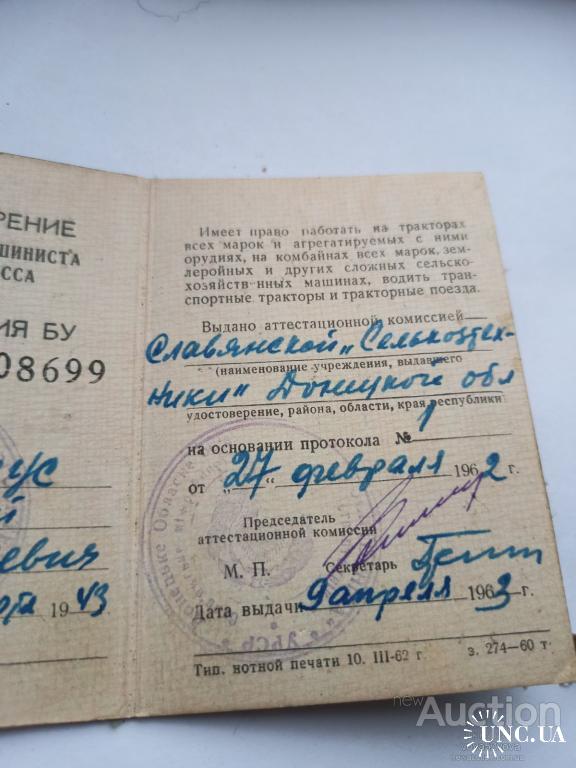 РЕНИЕ
ШИНИСТА
ССА
ИЯ БУ
08699
ус
й
евич
рта 1943
Имеет право работать на тракторах
всех марок и агрегатируемых с ними
орудиях, на комбайнах всех марок, зем-
леройных и других сложных сельско-
хозяйств нных машинах, водить тран-
спортные тракторы и тракторные поезда.
Выдано аттестационной комиссией
Славянской „Сельхозтех-
(наименование учреждения, выдавшего
ники" Донецкой обл
удостоверение, района, области, края, республики
на основании протокола № 1
от „27" февраля 1962 г.
Председатель
аттестационной комиссии
М. П. Секретарь
Дата выдачи 9 апреля 1963 г.
Тип. нотной печати 10. III-62 г. з. 274—60 т
Донецьке Обласне
УРСР
new Auction
UNC.UA